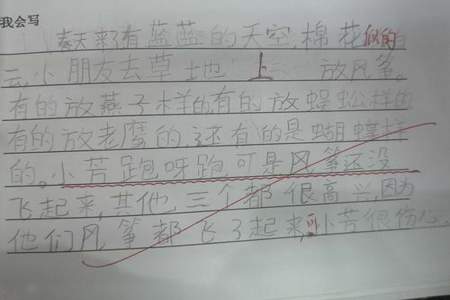 我会写
春天来有蓝蓝的天空,棉花似的
云,小朋友去草地上放风筝。
有的放燕子样的有的放蜈蚣样的
有的放老鹰的,还有的是蝴蝶样
的。小芳跑呀跑,可是风筝还没
飞起来,其他三个都很高兴,因为
他们风筝都飞了起来,可小芳很伤心。